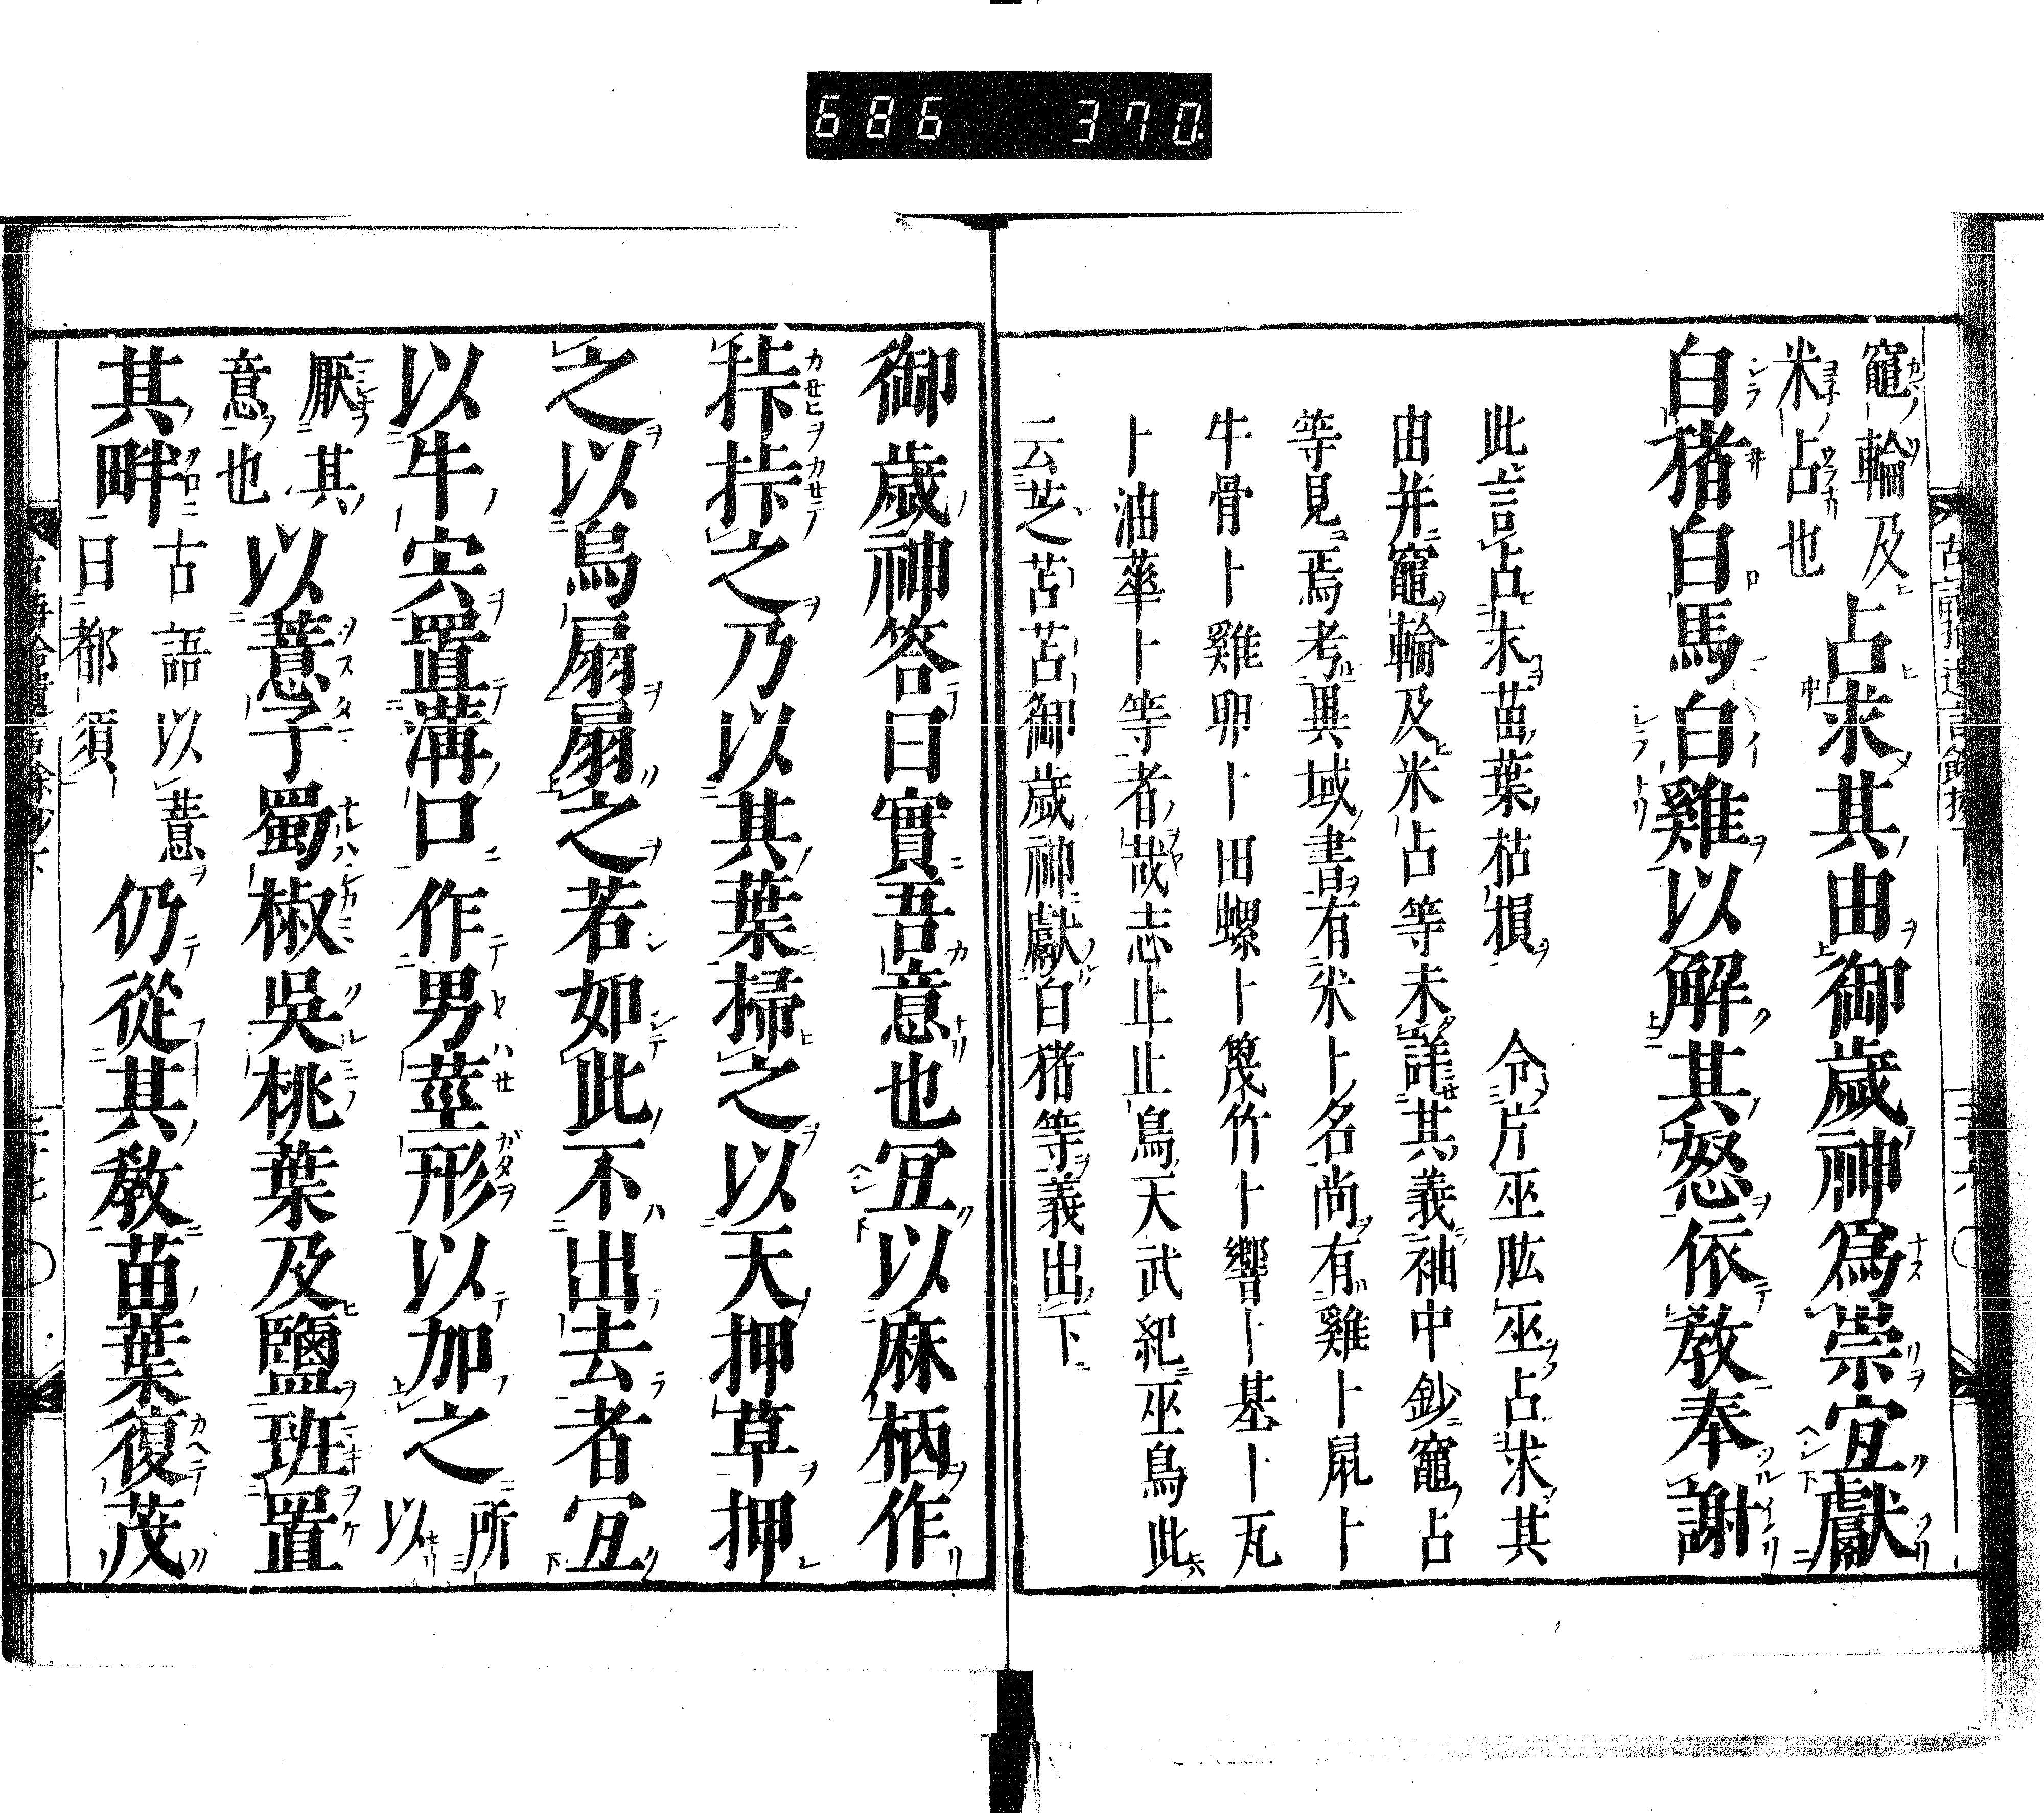 686 370.
竈輪及米占也占求其由御歲神爲崇宜獻
白猪白馬白雞以解其怒依教奉謝
此言占求苗葉枯損 令片巫肱巫占求其
由并竈輪及米占等未詳其義袖中鈔竈占
等見焉考異域書有米卜名尚有雞卜鼠卜
牛骨卜雞卵卜田螺卜篾竹卜響卜基卜瓦
卜油華卜等者哉志止止鳥天武紀巫鳥此
云芝苫苫御歲神獻白猪等義出下
御歲神答曰實吾意也宜以麻柄作
桛桛之乃以其葉掃之以天押草押
之以烏扇扇之若如此不出去者宜
以牛宍置溝口作男莖形以加之所以
厭其意也以薏子蜀椒吳桃葉及鹽班置
其畔古語以薏曰都須仍從其教苗葉復茂